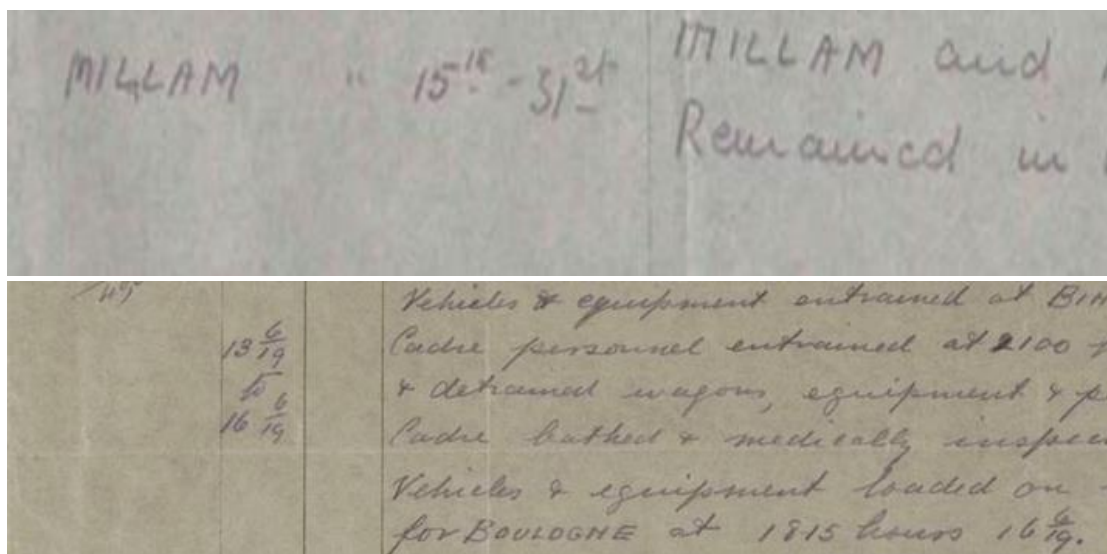 MILLAM " 15th - 31st MILLAM and
Remained in
Vehicles & equipment entrained at BIH
13 6/19 Cadre personnel entrained at 2100
to & detrained wagons, equipment & p
16 6/19 Cadre bathed & medically inspec
Vehicles & equipment loaded on
for BOULOGNE at 1815 hours 16 6/19.